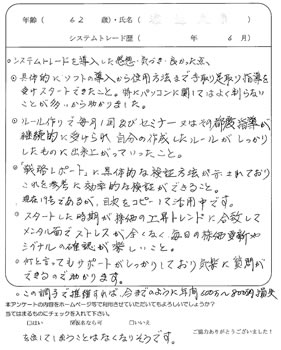 年齢（ 62 歳）・氏名（
システムトレード歴（ 年 6 月）
・システムトレードを導入した感想・気づき・良かった点
◎具体的にソフトの導入から使用方法まで手取り足取り指導を
受けスタートできたこと。特にパソコンに関してはよく判らない
ことが多いから助かりました。
◎ルール作りで毎月1回及びセミナー又はその都度指導が
継続的に受けられ自分の作成したルールがしっかり
したものに出来上がっていったこと。
◎「戦略レポート」に具体的な検証方法が示されており
これを参考に効率的な検証ができること。
現在1年もあるが、目次をコピーして活用中です。
◎スタートした時期が株価の上昇トレンドに合致して
メンタル面でストレスが少なく毎日の株価更新や
シグナルの確認が楽しいこと。
◎何と言ってもサポートがしっかりしており気楽に質問が
できるので助かります。
◎この調子で推移すれば、今までのように年間600万〜800万損失
本アンケートの内容をホームページ等で利用させていただいてもよろしいでしょうか？
当てはまるものにチェックを入れて下さい。
□はい 限定名なら可 □いいえ
ご協力ありがとうございました！
を出してしまうことはなくなりそうです。